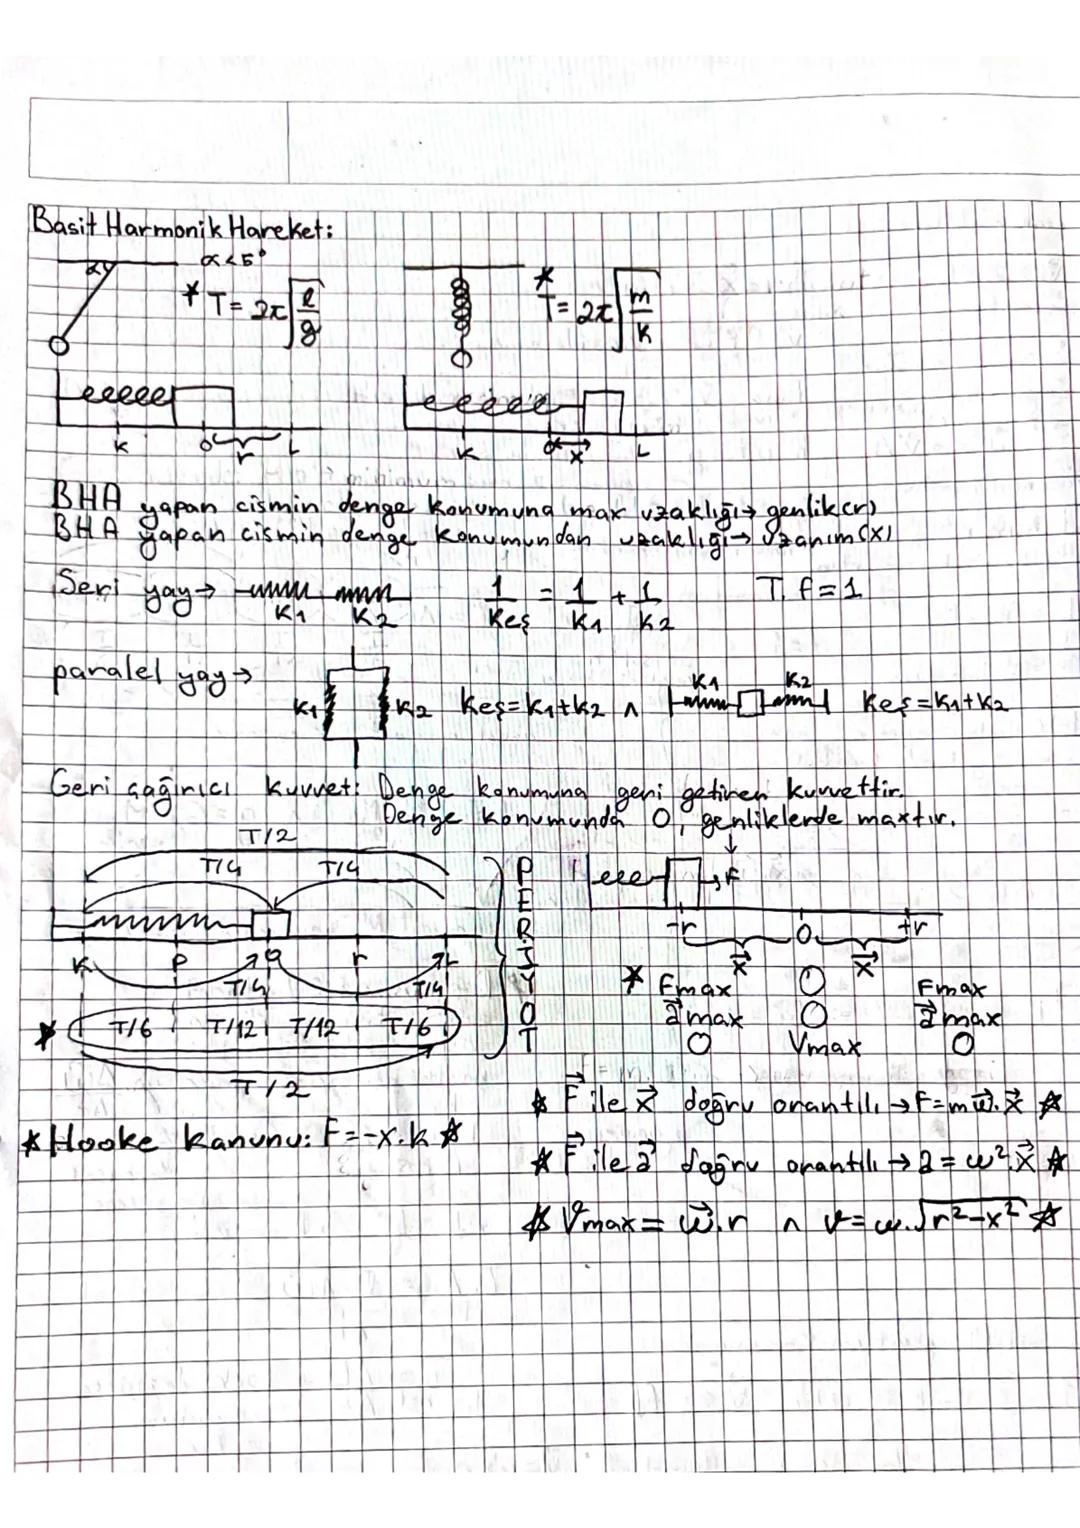 Basit Harmonik Hareket:
α<5°
α
* T = 2π√(l/g)
* T = 2π√(m/k)
K O r L
K O x L
BHA yapan cismin denge konumuna max uzaklığı→ genlik(r)
BHA yapan cismin denge konumundan uzaklığı→ uzanım(x)
Seri yay→ K1 K2 1/Keş = 1/K1 + 1/K2 T.f=1
paralel yay→ K1 K2 Keş=K1+K2 ∧ K1 K2 Keş=K1+K2
Geri çağırıcı kuvvet: Denge konumuna geri getiren kuvvettir.
Denge konumunda 0, genliklerde maxtır.
T/2
T/4 T/4
K P O r L
T/4 T/4
* T/6 T/12 T/12 T/6
T/2
PERİYOT
F
-r O +r
x⃗ x⃗
* Fmax O Fmax
a⃗max O a⃗max
O Vmax O
* F⃗ ile x⃗ doğru orantılı → F=mω⃗.x⃗ *
* Hooke kanunu: F=-x.k *
* F⃗ ile a⃗ doğru orantılı → a = ω².x⃗ *
* Vmax = ω⃗.r ∧ v=ω.√r²-x² *